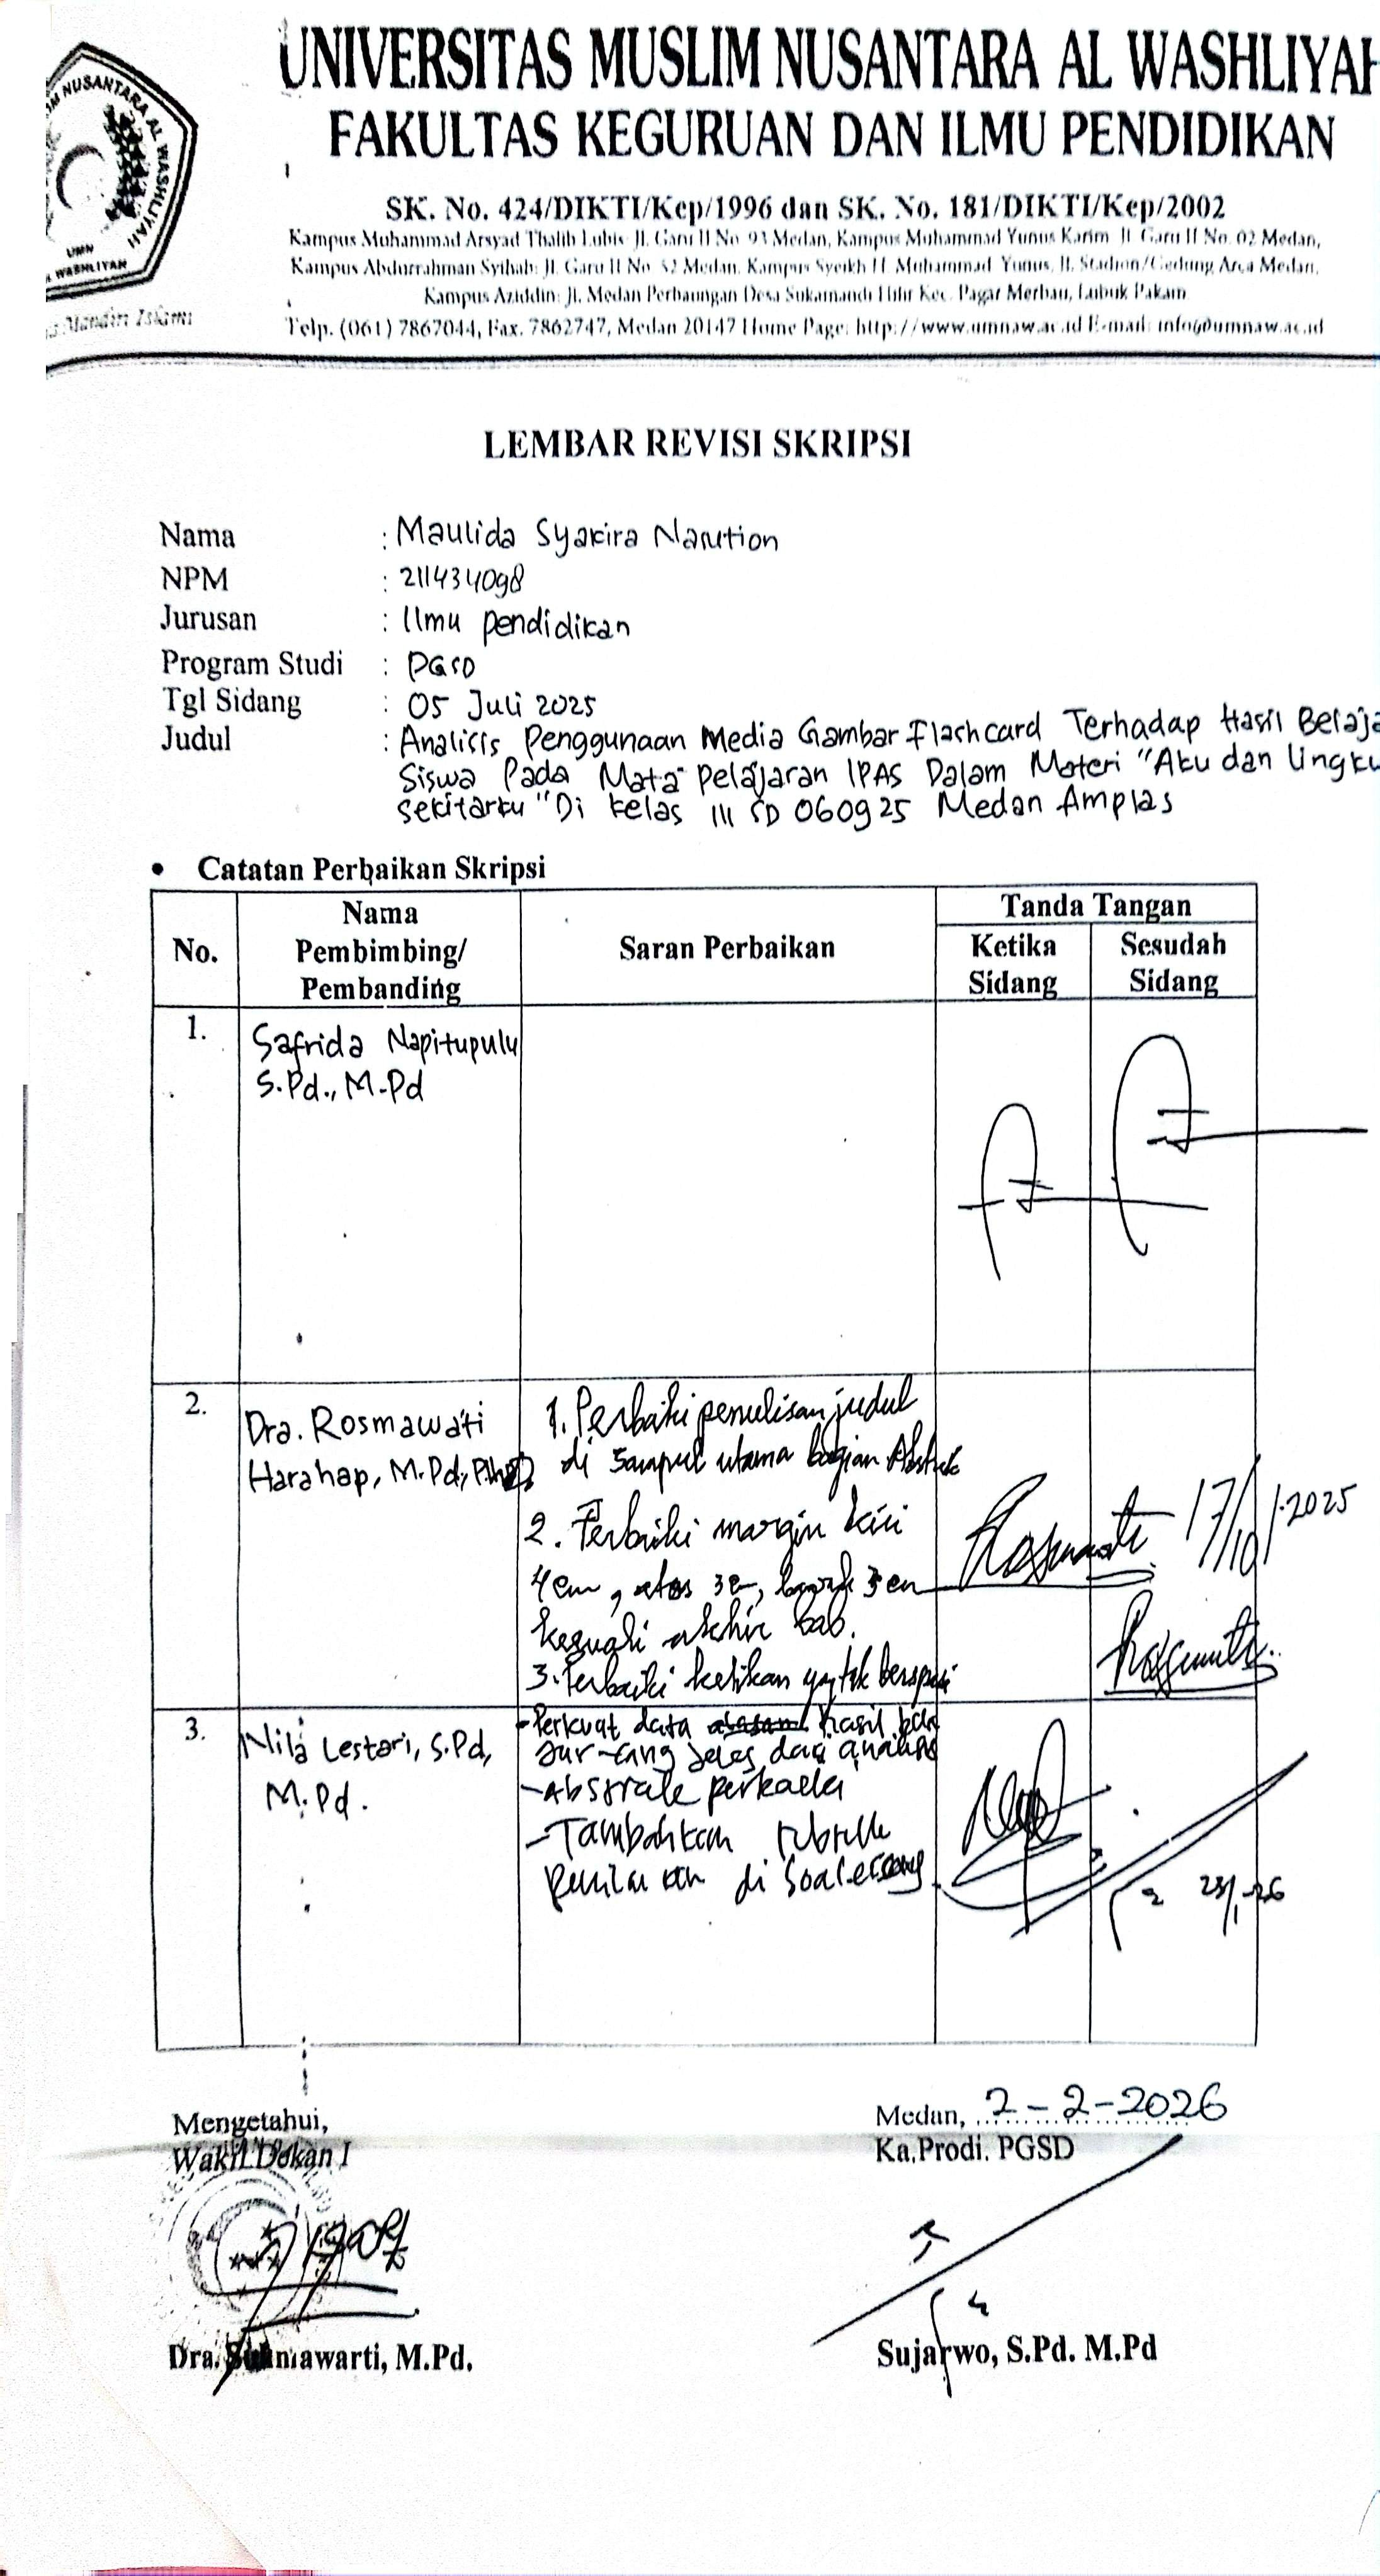 UNIVERSITAS MUSLIM NUSANTARA AL WASHLIYAH
FAKULTAS KEGURUAN DAN ILMU PENDIDIKAN
SK. No. 424/DIKTI/Kep/1996 dan SK. No. 181/DIKTI/Kep/2002
Kampus Muhammad Arsyad Thalib Lubis: Jl. Garu II No. 93 Medan, Kampus Muhammad Yunus Karim: Jl. Garu II No. 02 Medan,
Kampus Abdurrahman Syihab: Jl. Garu II No. 52 Medan, Kampus Syeikh H. Muhammad Yunus, Jl. Stadion/Gedung Arca Medan,
Kampus Aziddin: Jl. Medan Perbaungan Desa Sukamandi Hilir Kec. Pagar Merbau, Lubuk Pakam
Telp. (061) 7867044, Fax. 7862747, Medan 20147 Home Page: http://www.umnaw.ac.id E-mail: info@umnaw.ac.id
NUSANTARA AL WASHLIYAH
UMN
WASHLIYAH
Mandiri Islami
LEMBAR REVISI SKRIPSI
Nama : Maulida Syakira Nasution
NPM : 211434098
Jurusan : Ilmu pendidikan
Program Studi : PGSD
Tgl Sidang : 05 Juli 2025
Judul : Analisis Penggunaan Media Gambar Flashcard Terhadap Hasil Belaja
Siswa Pada Mata Pelajaran IPAS Dalam Materi "Aku dan Lingku
sekitarku" Di kelas III SD 060925 Medan Amplas
• Catatan Perbaikan Skripsi
No.
Nama
Pembimbing/
Pembanding
Saran Perbaikan
Tanda Tangan
Ketika
Sidang
Sesudah
Sidang
1.
Safrida Napitupulu
S.Pd., M.Pd
2.
Dra. Rosmawati
Harahap, M.Pd.,
1. Perbaiki penulisan judul
di sampul utama bagian Abstrak
2. Perbaiki margin kiri
4 cm, atas 3 cm, bawah 3 cm
kecuali akhir bab.
3. Perbaiki ketikan yg tdk berspasi
17/10/2025
3.
Nila Lestari, S.Pd,
M.Pd.
- Perkuat data hasil
yang jelas dari analisis
- Abstrak perbaiki
- Tambahkan rubrik
penilaian di soal
23/1-26
Mengetahui,
Wakil Dekan I
Dra. Sukmawarti, M.Pd.
Medan, 2-2-2026
Ka.Prodi. PGSD
Sujarwo, S.Pd. M.Pd